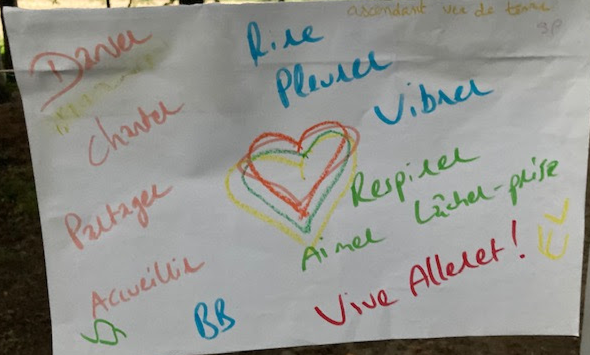 ascendant ver de terre
Danser
Rire
Pleurer
Vibrer
Chanter
Respirer
Partager
Lâcher-prise
Aimer
Accueillir
Vive Alleret !
BB